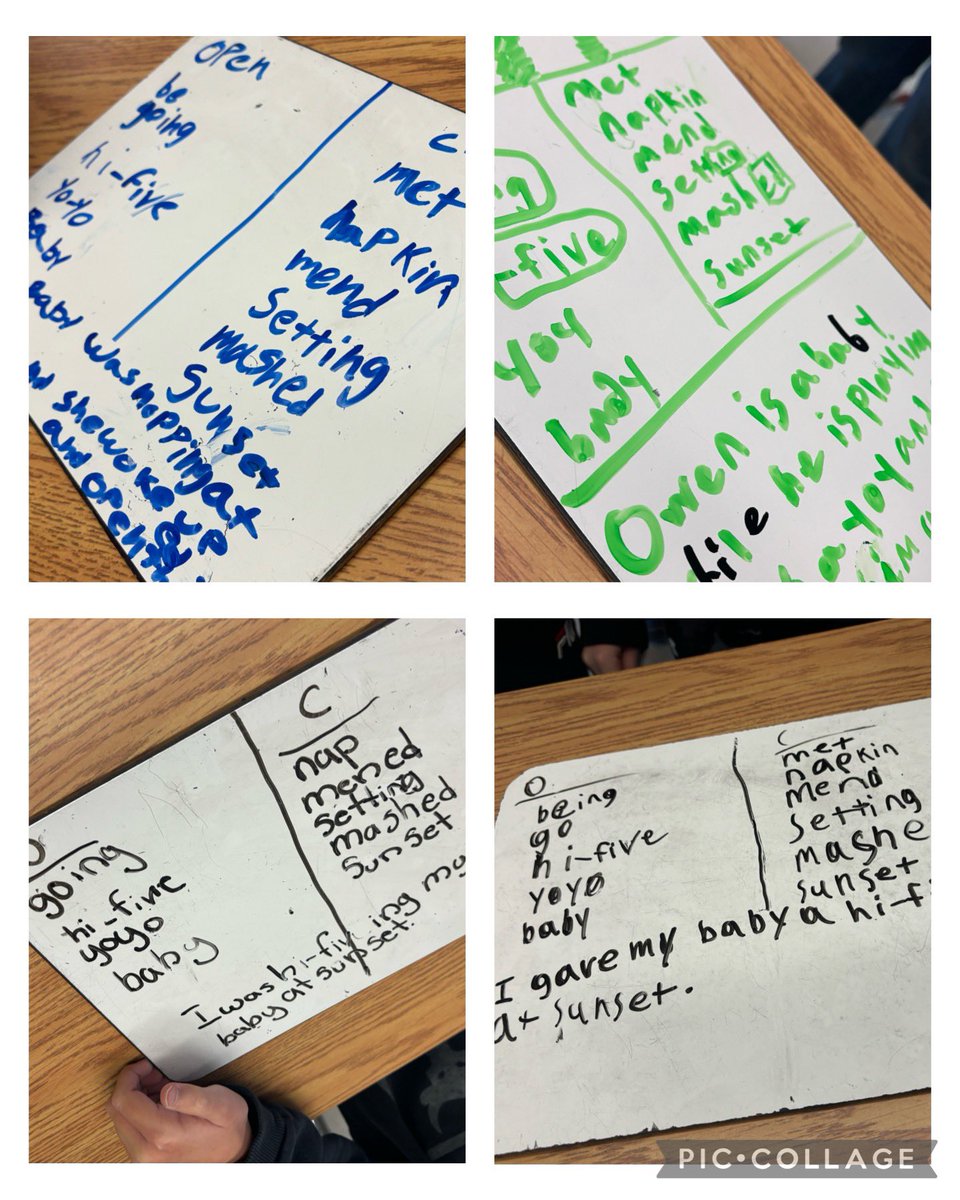 Open
be
going
hi-five
yo-yo
Baby
C
met
napkin
mend
setting
mashed
sunset
Baby was napping at
shewoke up
and open
met
napkin
mend
setting
mashed
sunset
five
yoy
body
Owen is a baby
hile he is playin
a toy and
O
going
hi-five
yoyo
baby
C
nap
mened
setting
mashed
sunset
I was hi-fiving my
baby at sunset.
O
being
go
hi-five
yoyo
baby
C
met
napkin
mend
setting
mashe
sunset
I gave my baby a hi-f
at sunset.
PIC•COLLAGE